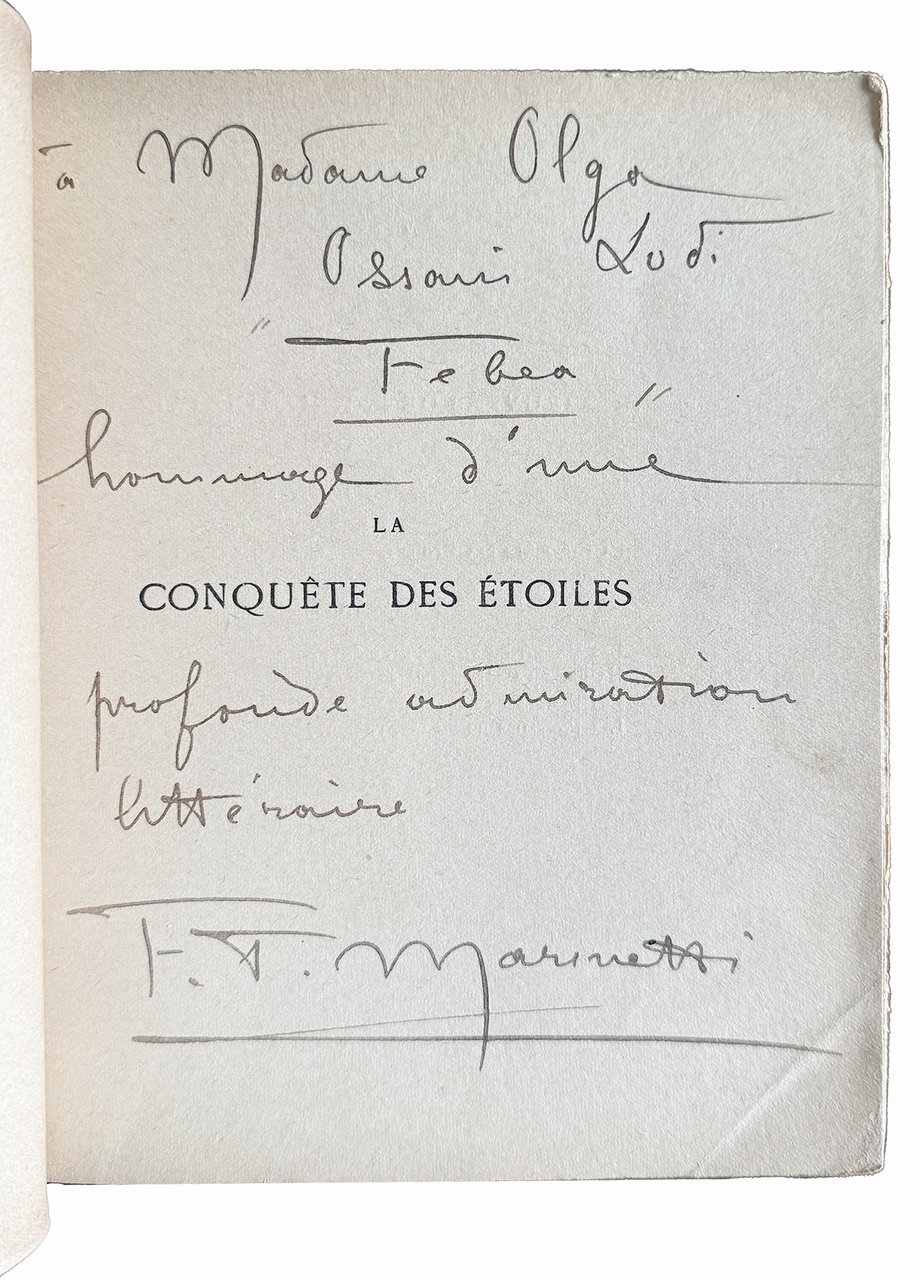 à Madame Olga
Ossani Lodi
"Febea"
hommage d'une
LA
CONQUÊTE DES ÉTOILES
profonde admiration
littéraire
F. T. Marinetti